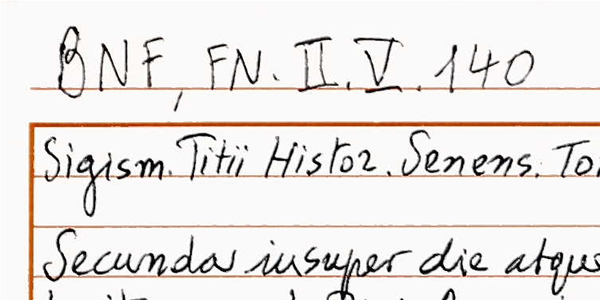 BNF, FN. II. V. 140
Sigism. Titii Histor. Senens. To
Secunda insuper die atque